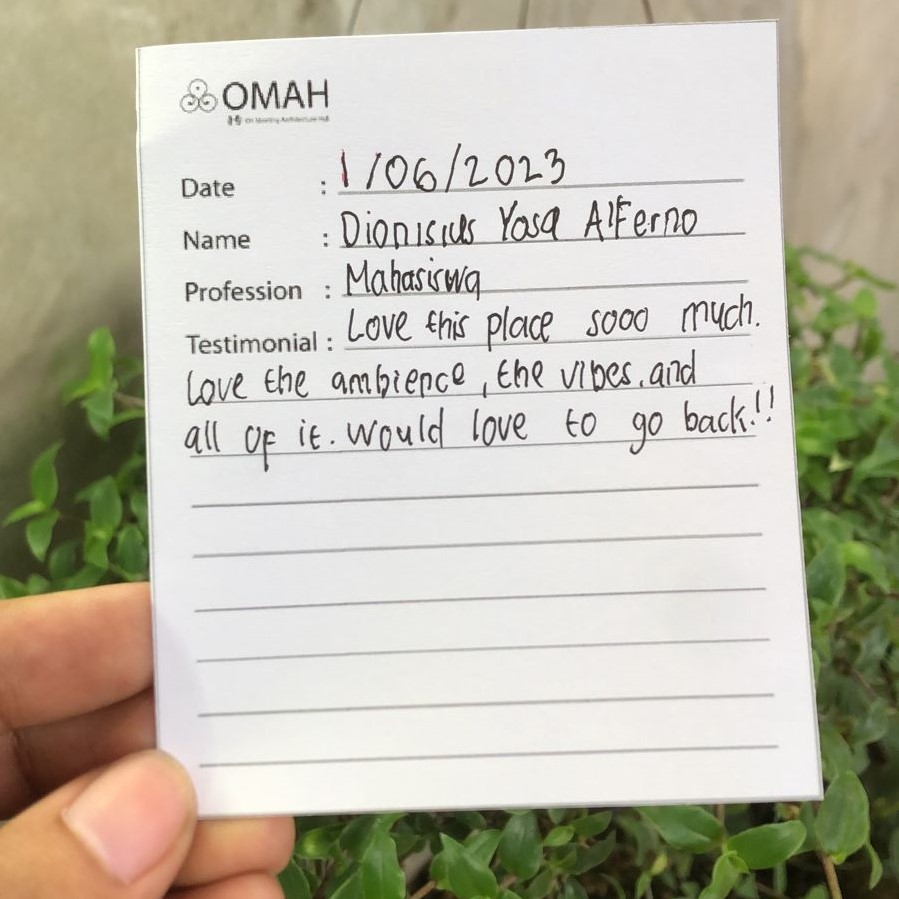 OMAH
Date : 1/06/2023
Name : Dionisius Yosa AlFerno
Profession : Mahasiswa
Testimonial : Love this place sooo much.
Love the ambience, the vibes, and
all of it. Would love to go back!!